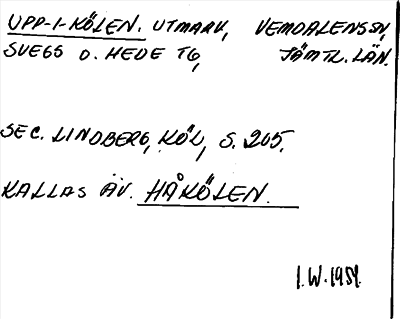 UPP-I-KÖLEN. UTMARK, VEMDALENS SN,
SVEGS O. HEDE TG, JÄMTL. LÄN.
SEC. LINDBERG, KÖL, S. 205.
KALLAS ÄV. HÅKÖLEN.
I.W. 1951.